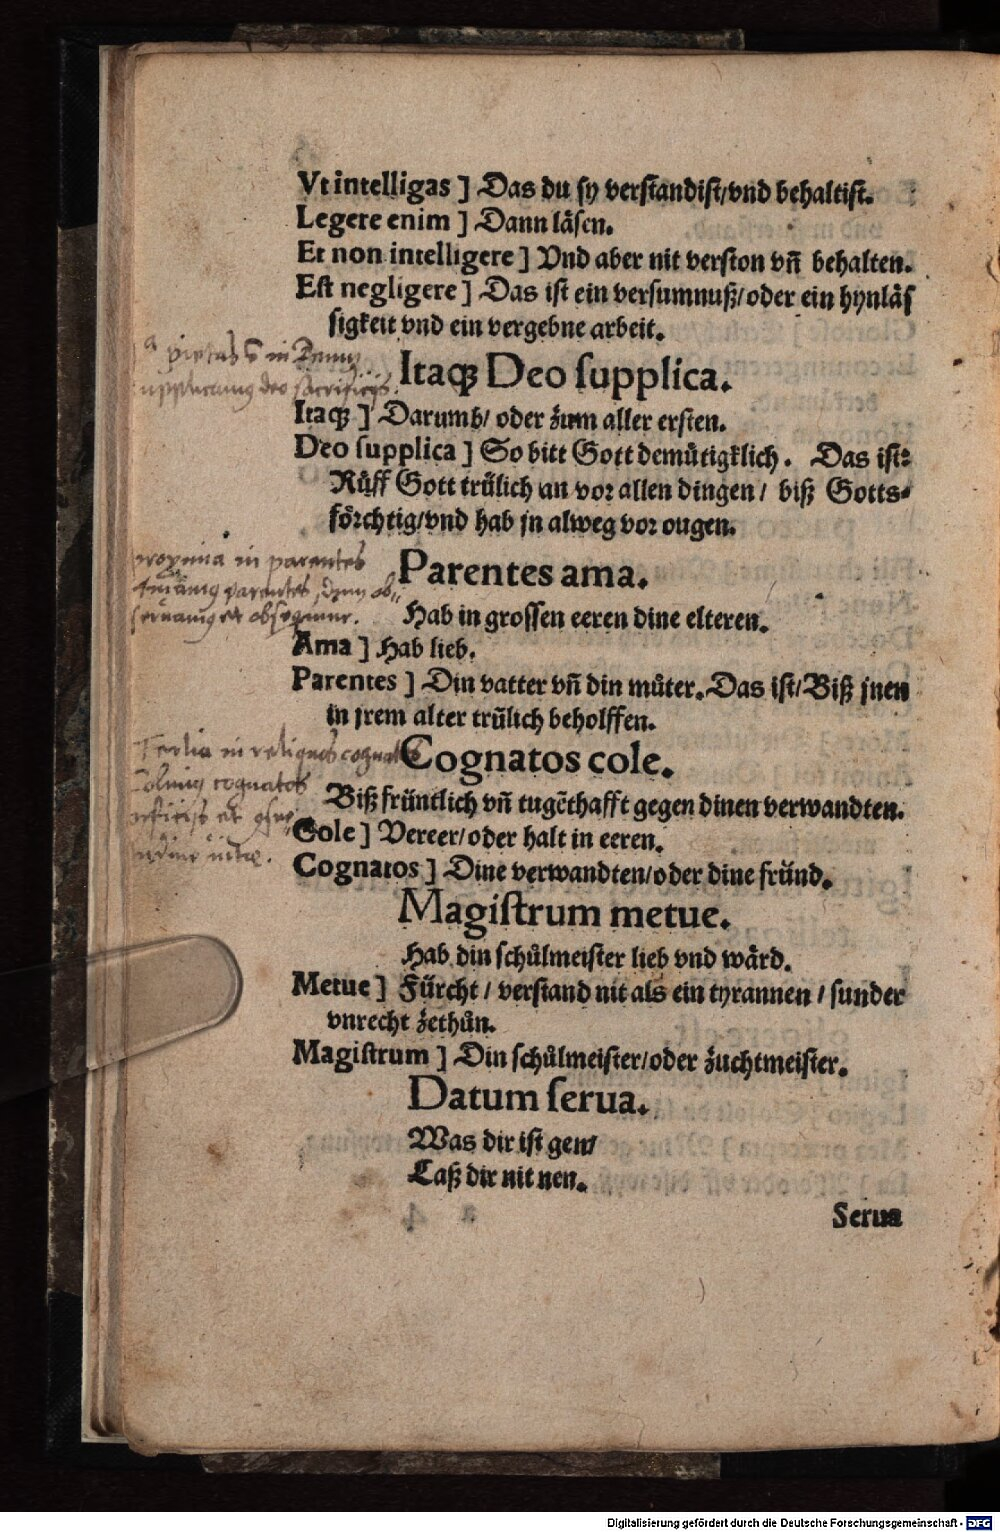 Vt intelligas ] Das du sy verstandist/vnd behaltist.
Legere enim ] Dann låsen.
Et non intelligere ] Vnd aber nit verston vñ behalten.
Est negligere ] Das ist ein versumnuß/oder ein hynlås
sigkeit vnd ein vergebne arbeit.
Itaqꝫ Deo supplica.
Itaqꝫ ] Darumb/ oder zum aller ersten.
Deo supplica ] So bitt Gott demůtigklich. Das ist:
Růff Gott trülich an vor allen dingen/ biß Gotts-
förchtig/vnd hab jn alweg vor ougen.
proxima in parentes
parentes
Parentes ama.
Hab in grossen eeren dine elteren.
Ama ] Hab lieb.
Parentes ] Din vatter vñ din můter. Das ist/Biß jnen
in jrem alter trülich beholffen.
Tertia in reliquos cognatos
cognatos
Cognatos cole.
Biß früntlich vñ tugēthafft gegen dinen verwandten.
Cole ] Vereer/oder halt in eeren.
Cognatos ] Dine verwandten/oder dine fründ.
Magistrum metue.
Hab din schůlmeister lieb vnd wård.
Metue ] Fürcht/ verstand nit als ein tyrannen/ sunder
vnrecht zethůn.
Magistrum ] Din schůlmeister/oder zuchtmeister.
Datum serua.
Was dir ist gen/
Laß dir nit nen.
Serua
Digitalisierung gefördert durch die Deutsche Forschungsgemeinschaft - DFG